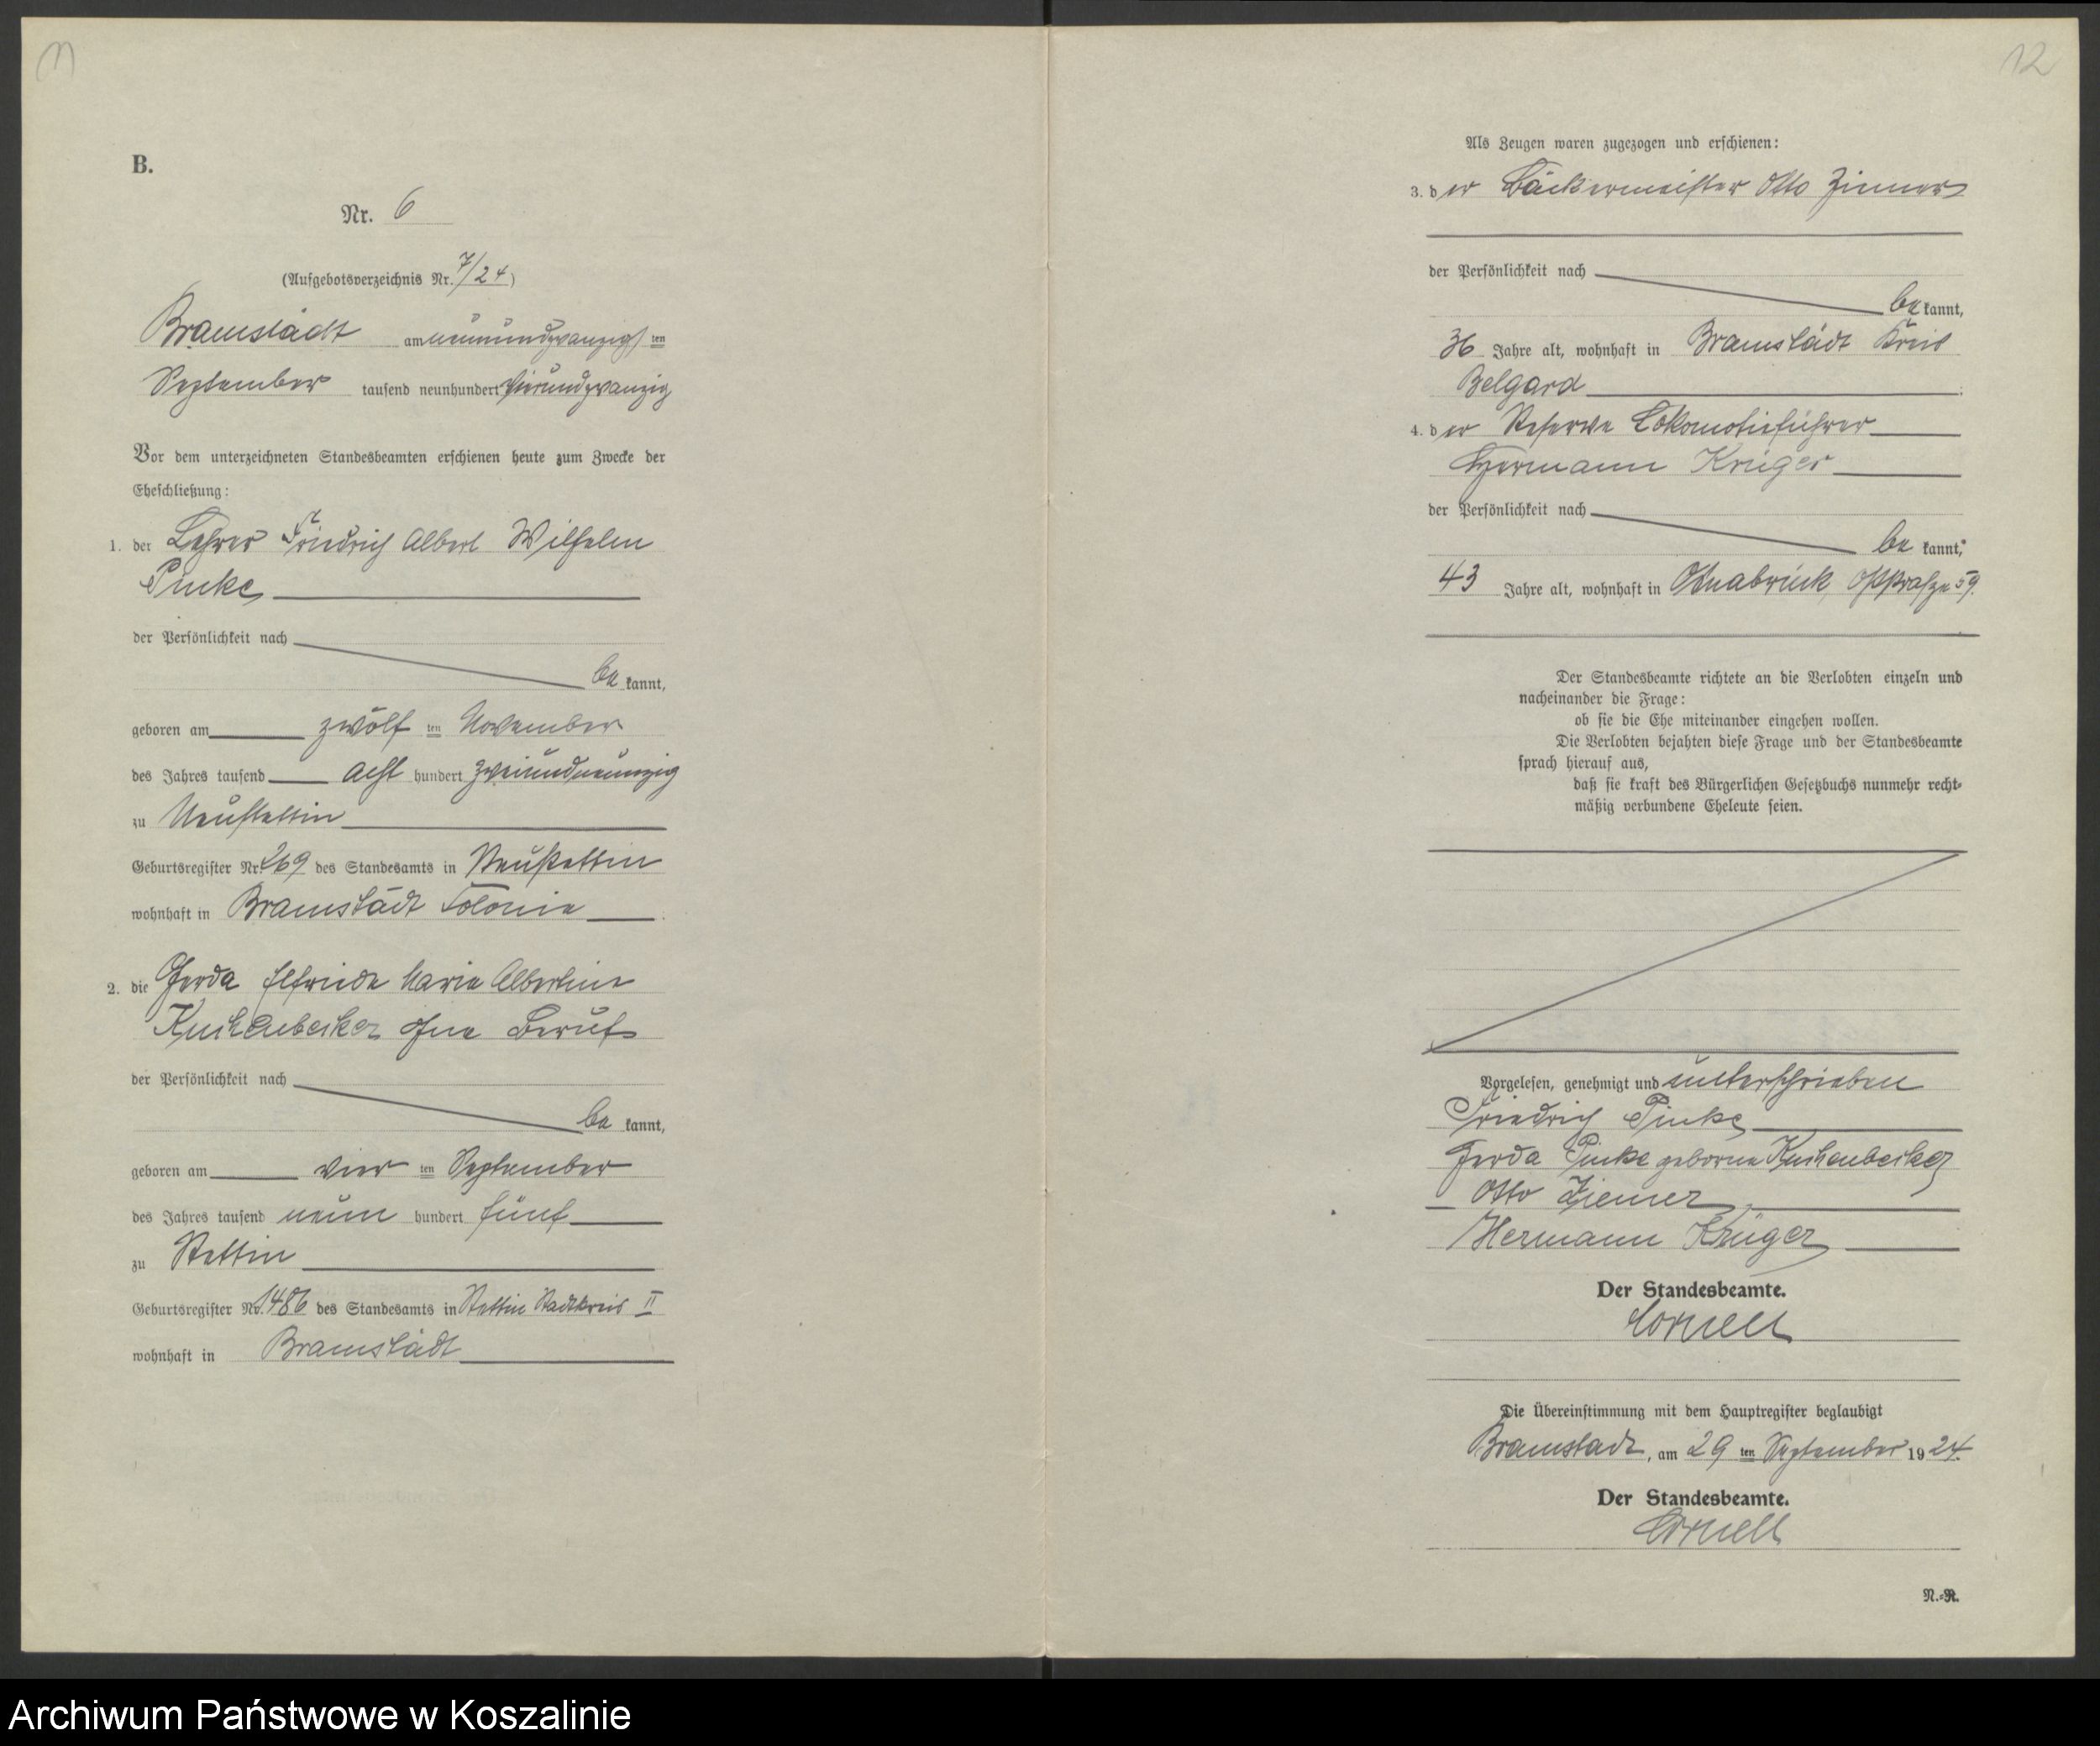 11
B.
Nr. 6
(Aufgebotsverzeichnis Nr. 7/24)
Bramstädt am neunundzwanzigsten
September tausend neunhundert vierundzwanzig
Vor dem unterzeichneten Standesbeamten erschienen heute zum Zwecke der
Eheschließung:
1. der Lehrer Friedrich Albert Wilhelm
Pinke
der Persönlichkeit nach
be kannt,
geboren am zwölf ten November
des Jahres tausend acht hundert zweiundneunzig
zu Neustettin
Geburtsregister Nr. 269 des Standesamts in Neustettin
wohnhaft in Bramstädt Kolonie
2. die Gerda Elfriede Marie Albertine
Kuchenbecker ohne Beruf
der Persönlichkeit nach
be kannt,
geboren am vier ten September
des Jahres tausend neun hundert fünf
zu Stettin
Geburtsregister Nr. 1486 des Standesamts in Stettin Stadtkreis II
wohnhaft in Bramstädt
12
Als Zeugen waren zugezogen und erschienen:
3. der Bäckermeister Otto Ziemer
der Persönlichkeit nach
be kannt,
36 Jahre alt, wohnhaft in Bramstädt Kreis
Belgard
4. der Reserve Lokomotivführer
Hermann Krüger
der Persönlichkeit nach
be kannt,
43 Jahre alt, wohnhaft in Osnabrück, 59.
Der Standesbeamte richtete an die Verlobten einzeln und
nacheinander die Frage:
ob sie die Ehe miteinander eingehen wollen.
Die Verlobten bejahten diese Frage und der Standesbeamte
sprach hierauf aus,
daß sie kraft des Bürgerlichen Gesetzbuchs nunmehr recht-
mäßig verbundene Eheleute seien.
Vorgelesen, genehmigt und unterschrieben
Friedrich Pinke
Gerda Pinke geborene Kuchenbecker
Otto Ziemer
Hermann Krüger
Der Standesbeamte.
Cornell
Die Übereinstimmung mit dem Hauptregister beglaubigt
Bramstädt, am 29 ten September 1924.
Der Standesbeamte.
Cornell
N.-R.
Archiwum Państwowe w Koszalinie